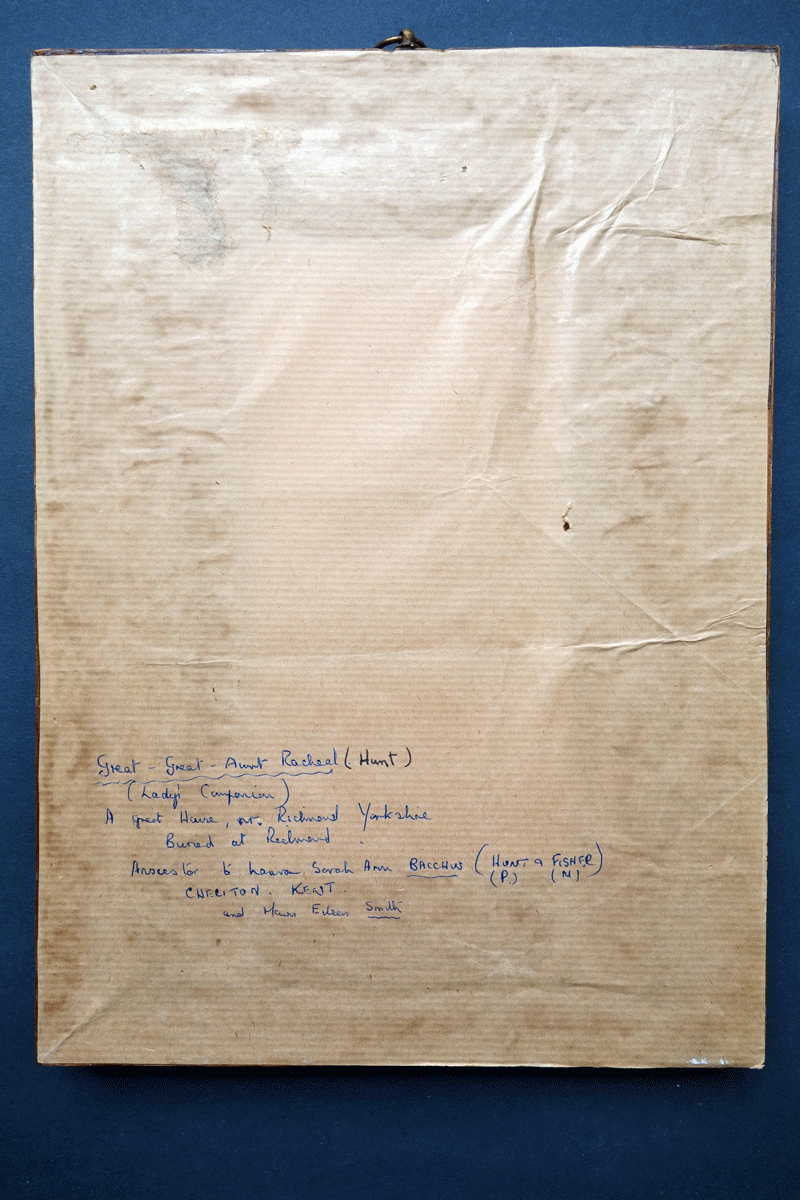 Great - Great - Aunt Racheal (Hunt)
(Lady's Companion)
A great House, nr. Richmond Yorkshire
Buried at Richmond.
Ancestor to Laura, Sarah Ann BACCHUS (HUNT & FISHER)
(P.) (M)
CHERITON. KENT.
and Eileen Smith